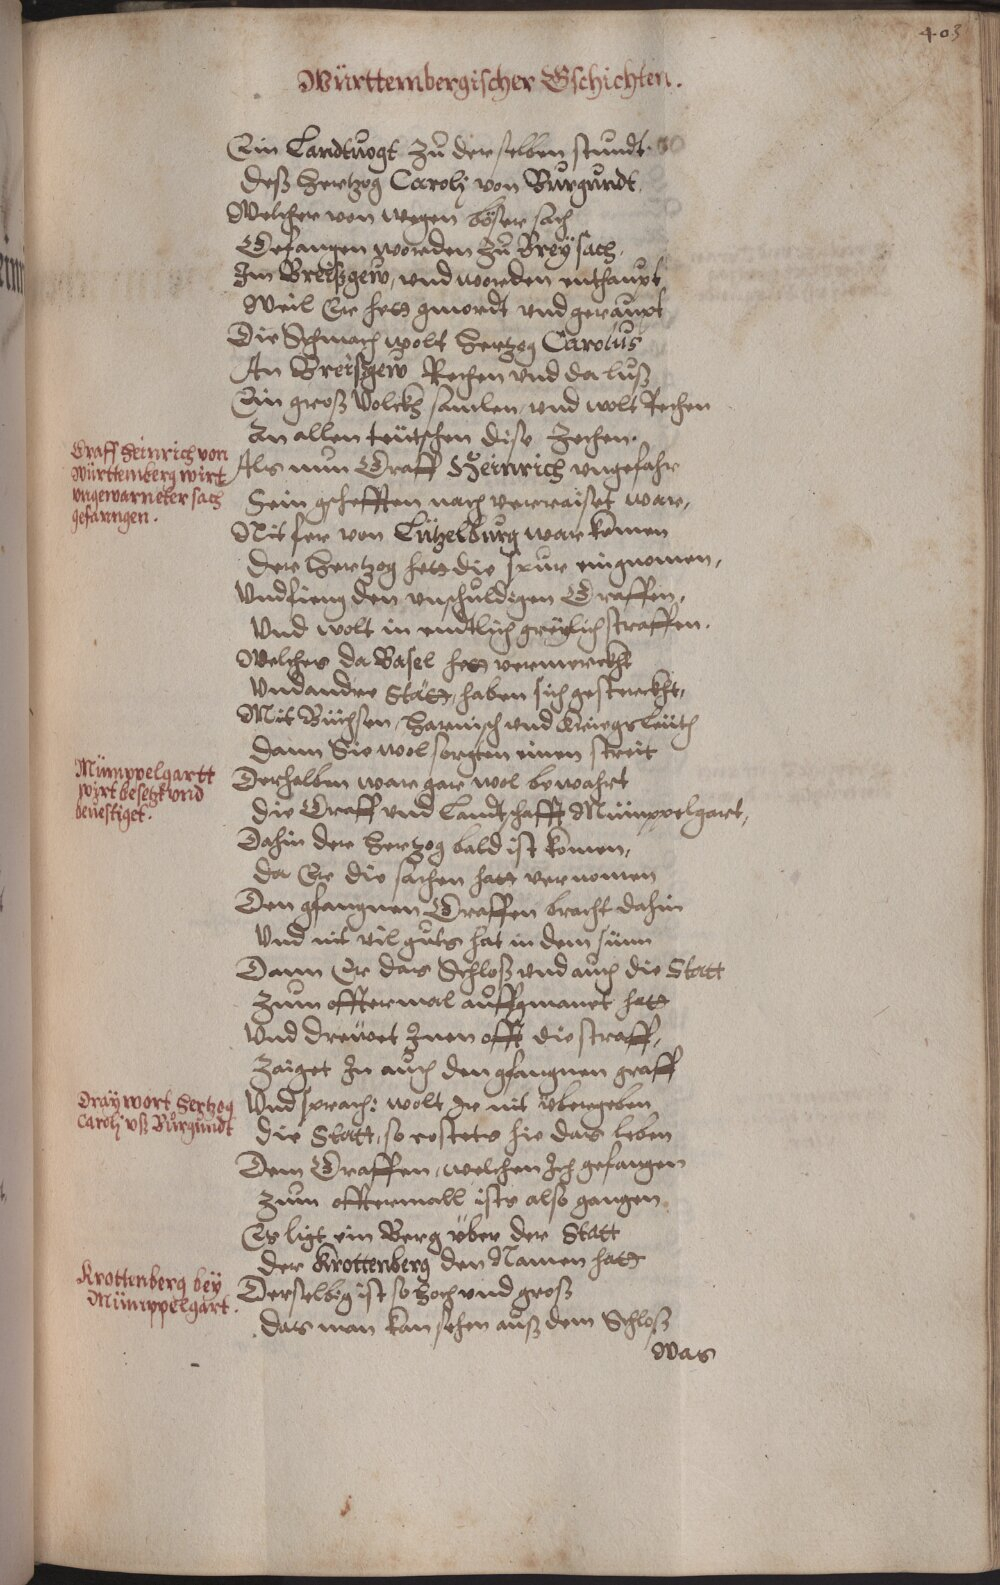 403
Württembergischer Gschichten.
Ein Landtuogt zu der selben stundt.
Deß Hertzog Carolj von Burgundt,
Welcher von wegen böser sach
Gefangen worden zu Breÿsach,
Im Breißgew, vnd worden enthaupt
Weil Er hett gmordt vnd geraupt
Die Schmach wolt Hertzog Carolus
An Breißgew Rechen vnd da luß
Ein groß Volckh samlen, vnd wolt Rechen
An allen teütschen dise Zechen.
Graff Heinrich von
Württemberg wirt
vngewarneter sach
gefanngen.
Als nun Graff Heinrich vngefahr
Sein gschefften nach verraiset ware,
Nit fer von Lützelburg war komen
Der Hertzog hett die spur eingnomen,
Vnd fieng den vnschuldigen Graffen,
Vnd wolt in endtlich greẅlich straffen.
Welches da Basel hett vermerckht
Vnd andre Stätt, haben sich gesterckht,
Mit Büchsen, Harnisch vnd Kriegsleüth
Dann Sie wol sorgten einen streit
Mümppelgartt
wirt besetzt vnd
beuestiget.
Derhalben ware gar wol bewahrt
Die Graff vnd Landtschafft Mümppelgart,
Dahin der Hertzog bald ist komen,
Da Er die sachen hatt vernomen
Den gfangnen Graffen bracht dahin
Vnd nit vil guts hat in dem sünn
Dann Er das Schloß vnd auch die Statt
Zum offtermal auffgmanet hatt
Vnd drewet Inen offt die straff,
Zaiget In auch den gfangnen graff
Dräẅ wort Hertzog
Carolj vß Burgundt
Vnd sprach: wolt Ir nit übergeben
Die Statt, so costets hie das leben
Dem Graffen, welchen Ich gefangen
Zum offtermall ists also gangen.
Es ligt ein Berg über der Statt
Der Krottenberg den Namen hatt
Krottenberg beÿ
Mümppelgart.
Derselbig ist so hoch vnd groß
Das man kan sehen auß dem Schloß
Was